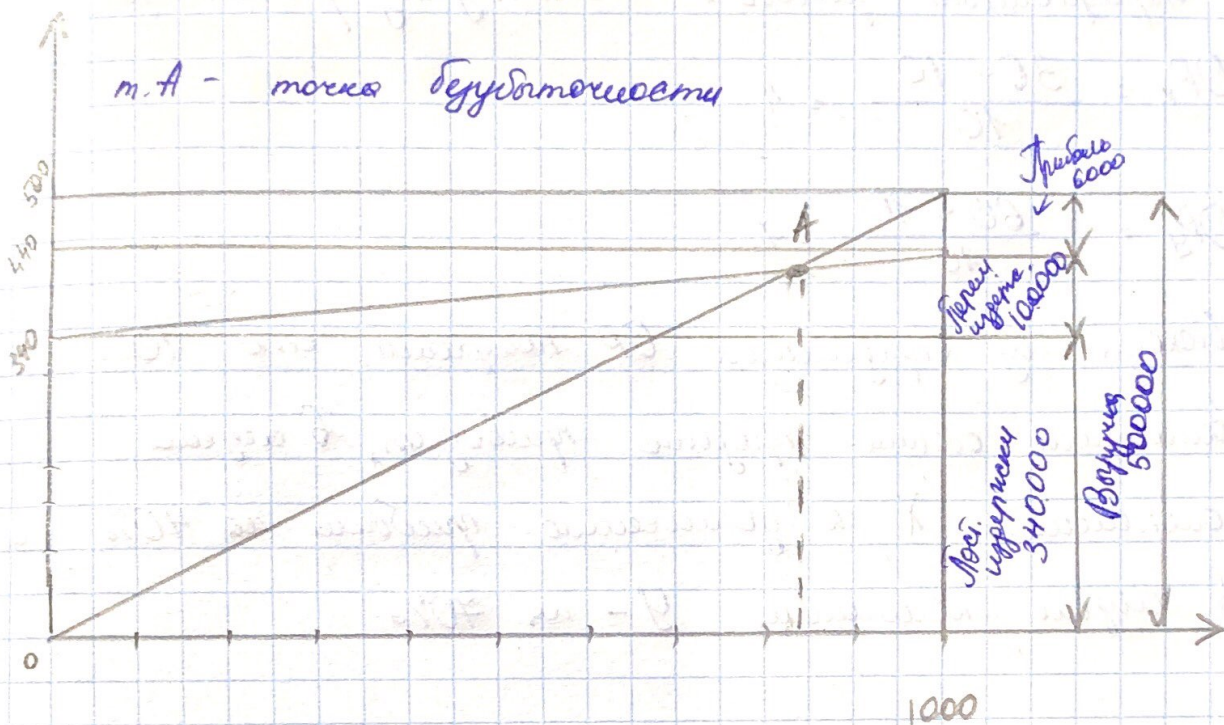 т. А - точка безубыточности
500
440
340
0
А
Прибыль
6000
Перем.
издерж.
100000
Пост.
издержки
340000
Выручка
500000
1000